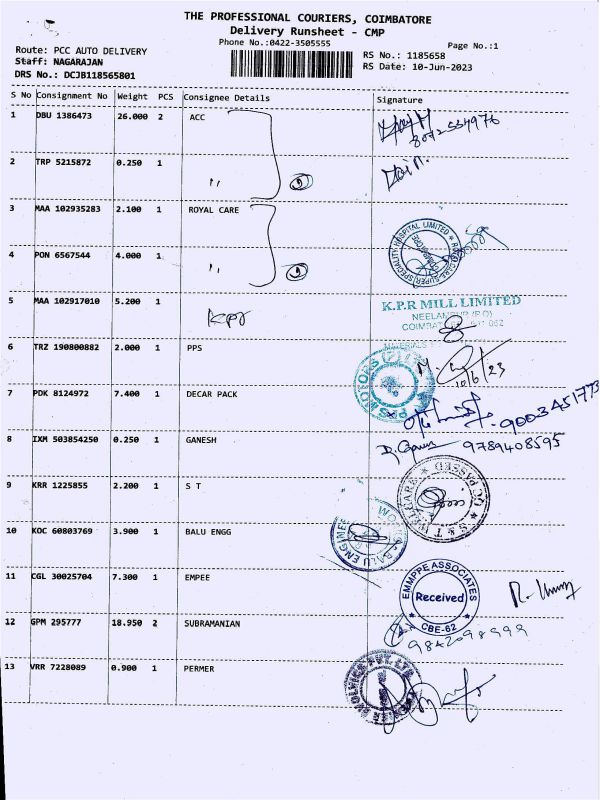 THE PROFESSIONAL COURIERS, COIMBATORE
Delivery Runsheet - CMP
Phone No.:0422-3505555
Page No.:1
Route: PCC AUTO DELIVERY
Staff: NAGARAJAN
DRS No.: DCJB118565801
RS No.: 1185658
RS Date: 10-Jun-2023
S No Consignment No Weight PCS Consignee Details Signature
1 DBU 1386473 26.000 2 ACC
2 TRP 5215872 0.250 1 " (2)
3 MAA 102935283 2.100 1 ROYAL CARE
4 PON 6567544 4.000 1 " (2)
5 MAA 102917010 5.200 1 KPR K.P.R MILL LIMITED
6 TRZ 190800882 2.000 1 PPS
10/6/23
7 PDK 8124972 7.400 1 DECAR PACK 9003451773
8 IXM 503854250 0.250 1 GANESH 9789408595
9 KRR 1225855 2.200 1 S T
10 KOC 60803769 3.900 1 BALU ENGG
11 CGL 30025704 7.300 1 EMPEE
EMMPPE ASSOCIATES
Received
CBE-62
12 GPM 295777 18.950 2 SUBRAMANIAN
9842098999
13 VRR 7228089 0.900 1 PERMER